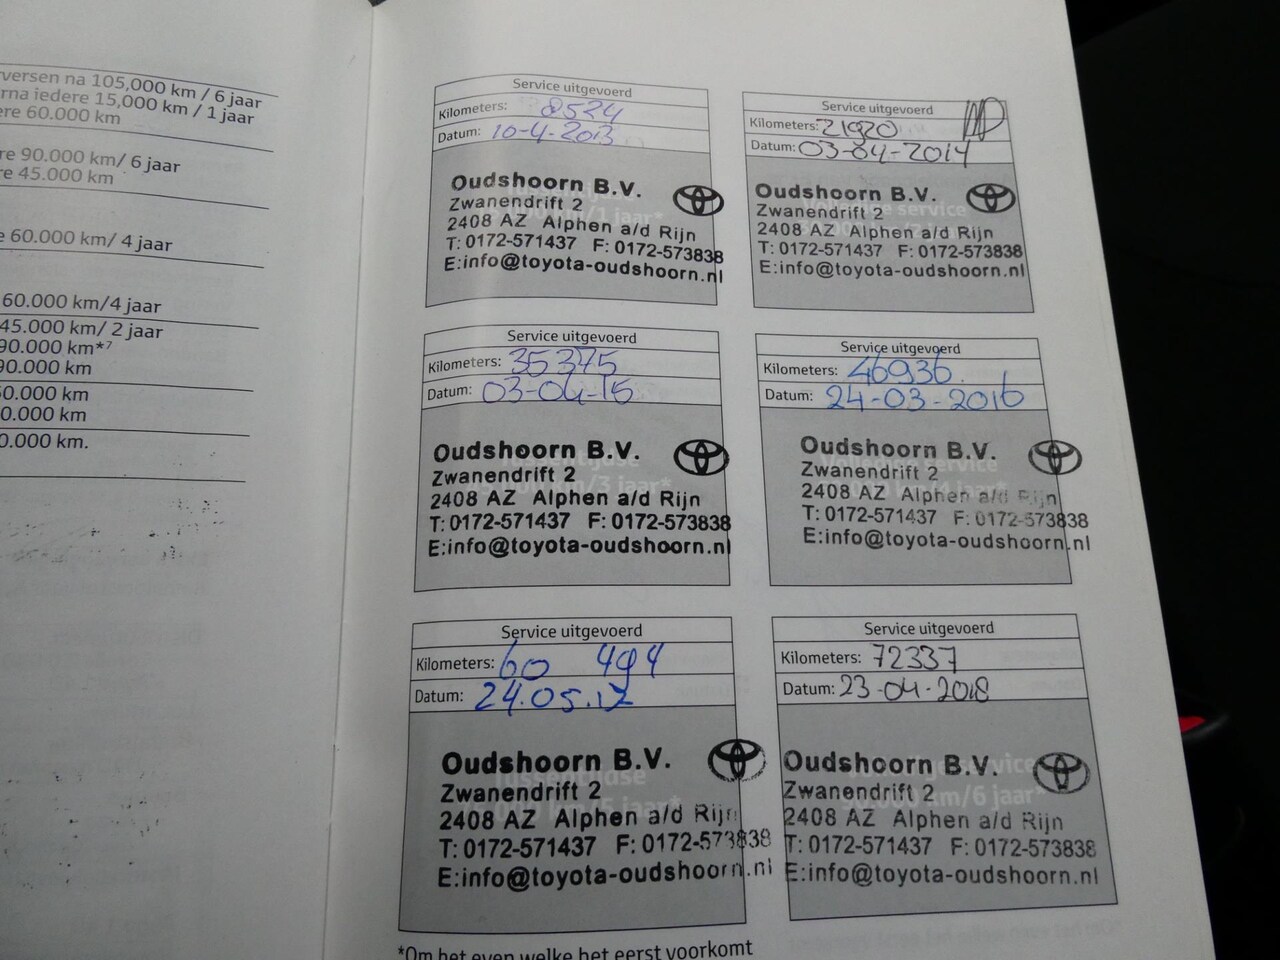 versen na 105,000 km / 6 jaar
rna iedere 15,000 km / 1 jaar
ere 60.000 km
re 90.000 km/ 6 jaar
re 45.000 km
e 60.000 km/ 4 jaar
60.000 km/4 jaar
45.000 km/ 2 jaar
90.000 km*7
90.000 km
0.000 km
0.000 km
0.000 km.
Service uitgevoerd
Kilometers: 8524
Datum: 10-4-2013
Oudshoorn B.V.
Zwanendrift 2
2408 AZ Alphen a/d Rijn
T: 0172-571437 F: 0172-573838
E:info@toyota-oudshoorn.nl
Service uitgevoerd
Kilometers: 21920
Datum: 03-04-2014
Oudshoorn B.V.
Zwanendrift 2
2408 AZ Alphen a/d Rijn
T: 0172-571437 F: 0172-573838
E:info@toyota-oudshoorn.nl
Service uitgevoerd
Kilometers: 35375
Datum: 03-04-15
Oudshoorn B.V.
Zwanendrift 2
2408 AZ Alphen a/d Rijn
T: 0172-571437 F: 0172-573838
E:info@toyota-oudshoorn.nl
Service uitgevoerd
Kilometers: 46936
Datum: 24-03-2016
Oudshoorn B.V.
Zwanendrift 2
2408 AZ Alphen a/d Rijn
T: 0172-571437 F: 0172-573838
E:info@toyota-oudshoorn.nl
Service uitgevoerd
Kilometers: 60 494
Datum: 24.05.17
Oudshoorn B.V.
Zwanendrift 2
2408 AZ Alphen a/d Rijn
T: 0172-571437 F: 0172-573838
E:info@toyota-oudshoorn.nl
Service uitgevoerd
Kilometers: 72337
Datum: 23-04-2018
Oudshoorn B.V.
Zwanendrift 2
2408 AZ Alphen a/d Rijn
T: 0172-571437 F: 0172-573838
E:info@toyota-oudshoorn.nl
*Om het even welke het eerst voorkomt